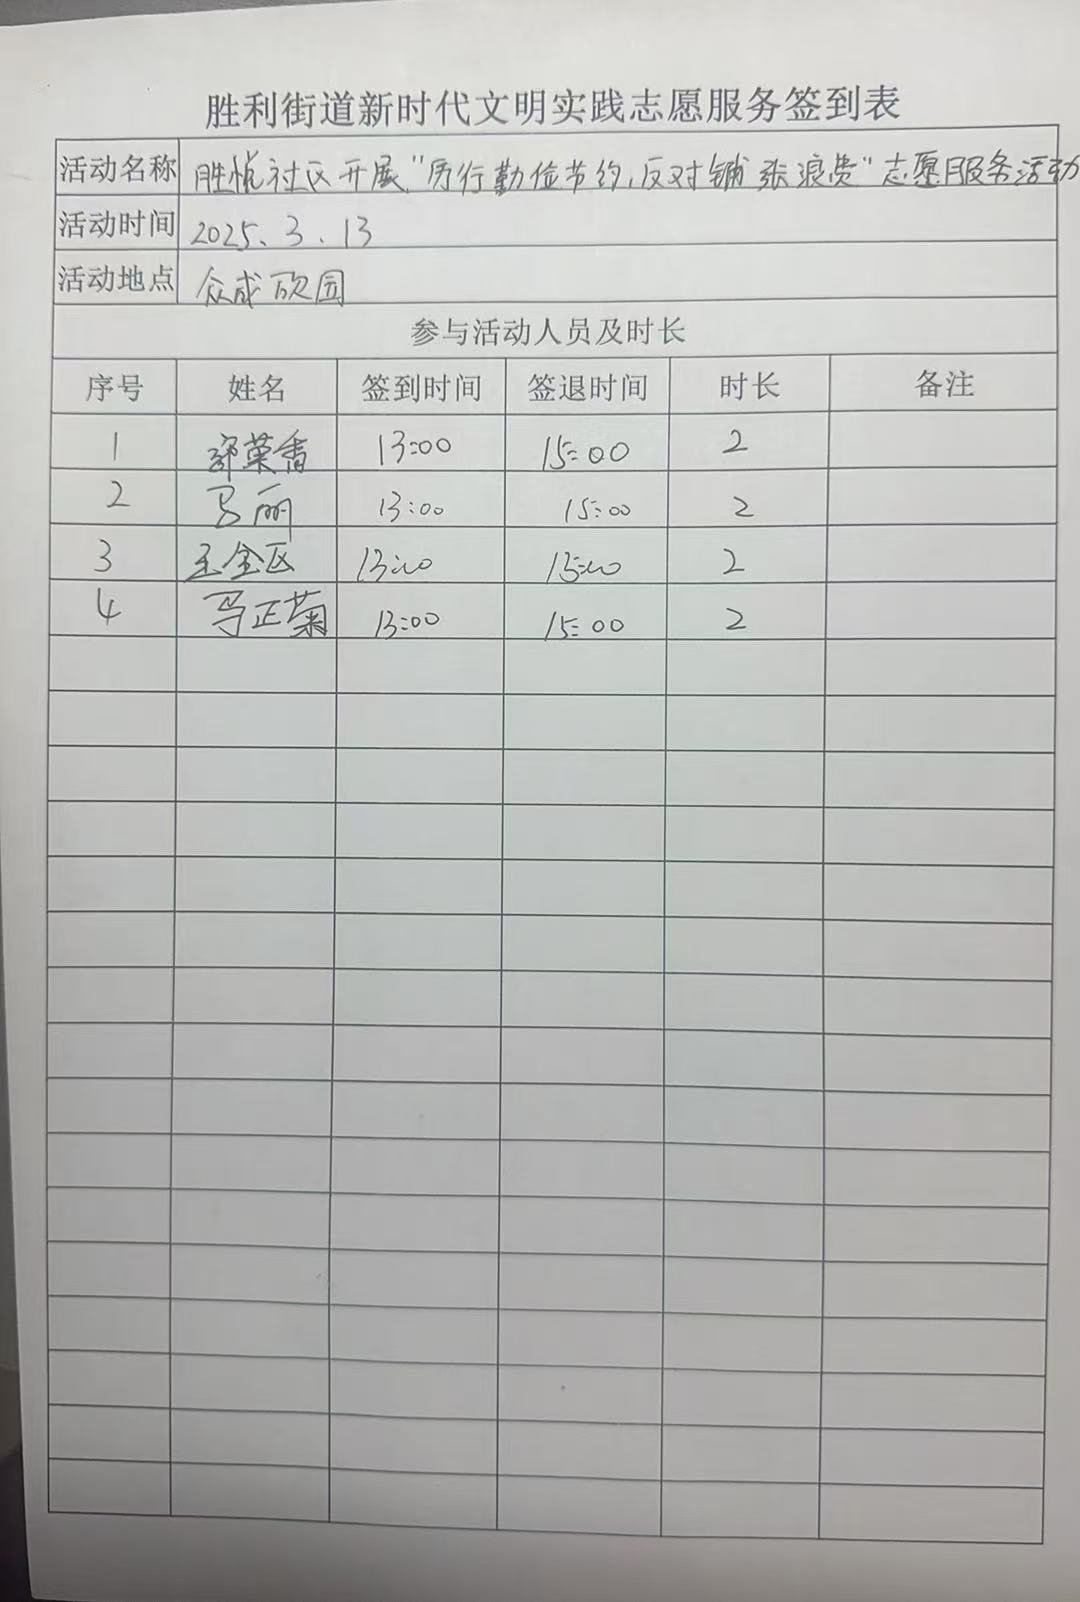 胜利街道新时代文明实践志愿服务签到表
活动名称 胜悦社区开展"厉行勤俭节约,反对铺张浪费"志愿服务活动
活动时间 2025、3、13
活动地点 众成欣园
参与活动人员及时长
序号 姓名 签到时间 签退时间 时长 备注
1 荣香 13:00 15:00 2
2 马丽 13:00 15:00 2
3 金区 13:00 15:00 2
4 马正菊 13:00 15:00 2